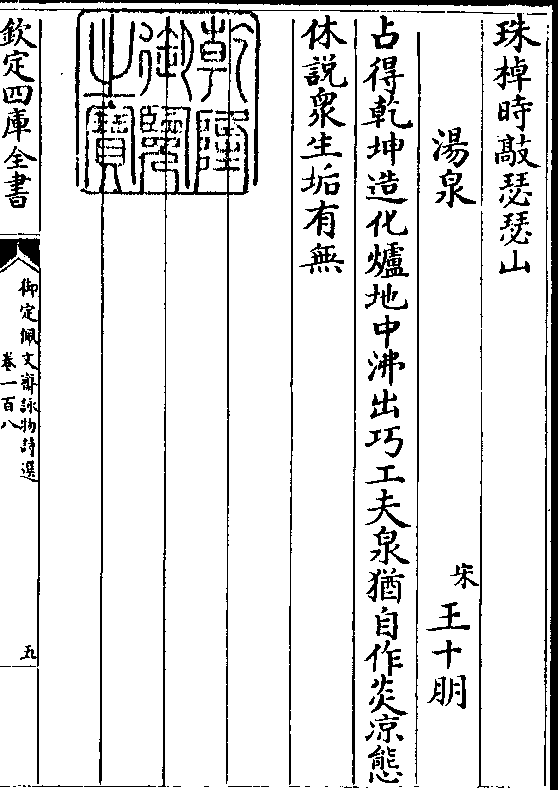 珠棹時敲瑟瑟山
湯泉
宋
王十朋
占得乾坤造化爐地中沸出巧工夫泉猶自作炎凉態
休說衆生垢有無
乾隆
御覽
之寶
欽定四庫全書
御定佩文齋詠物詩選
卷一百八
五